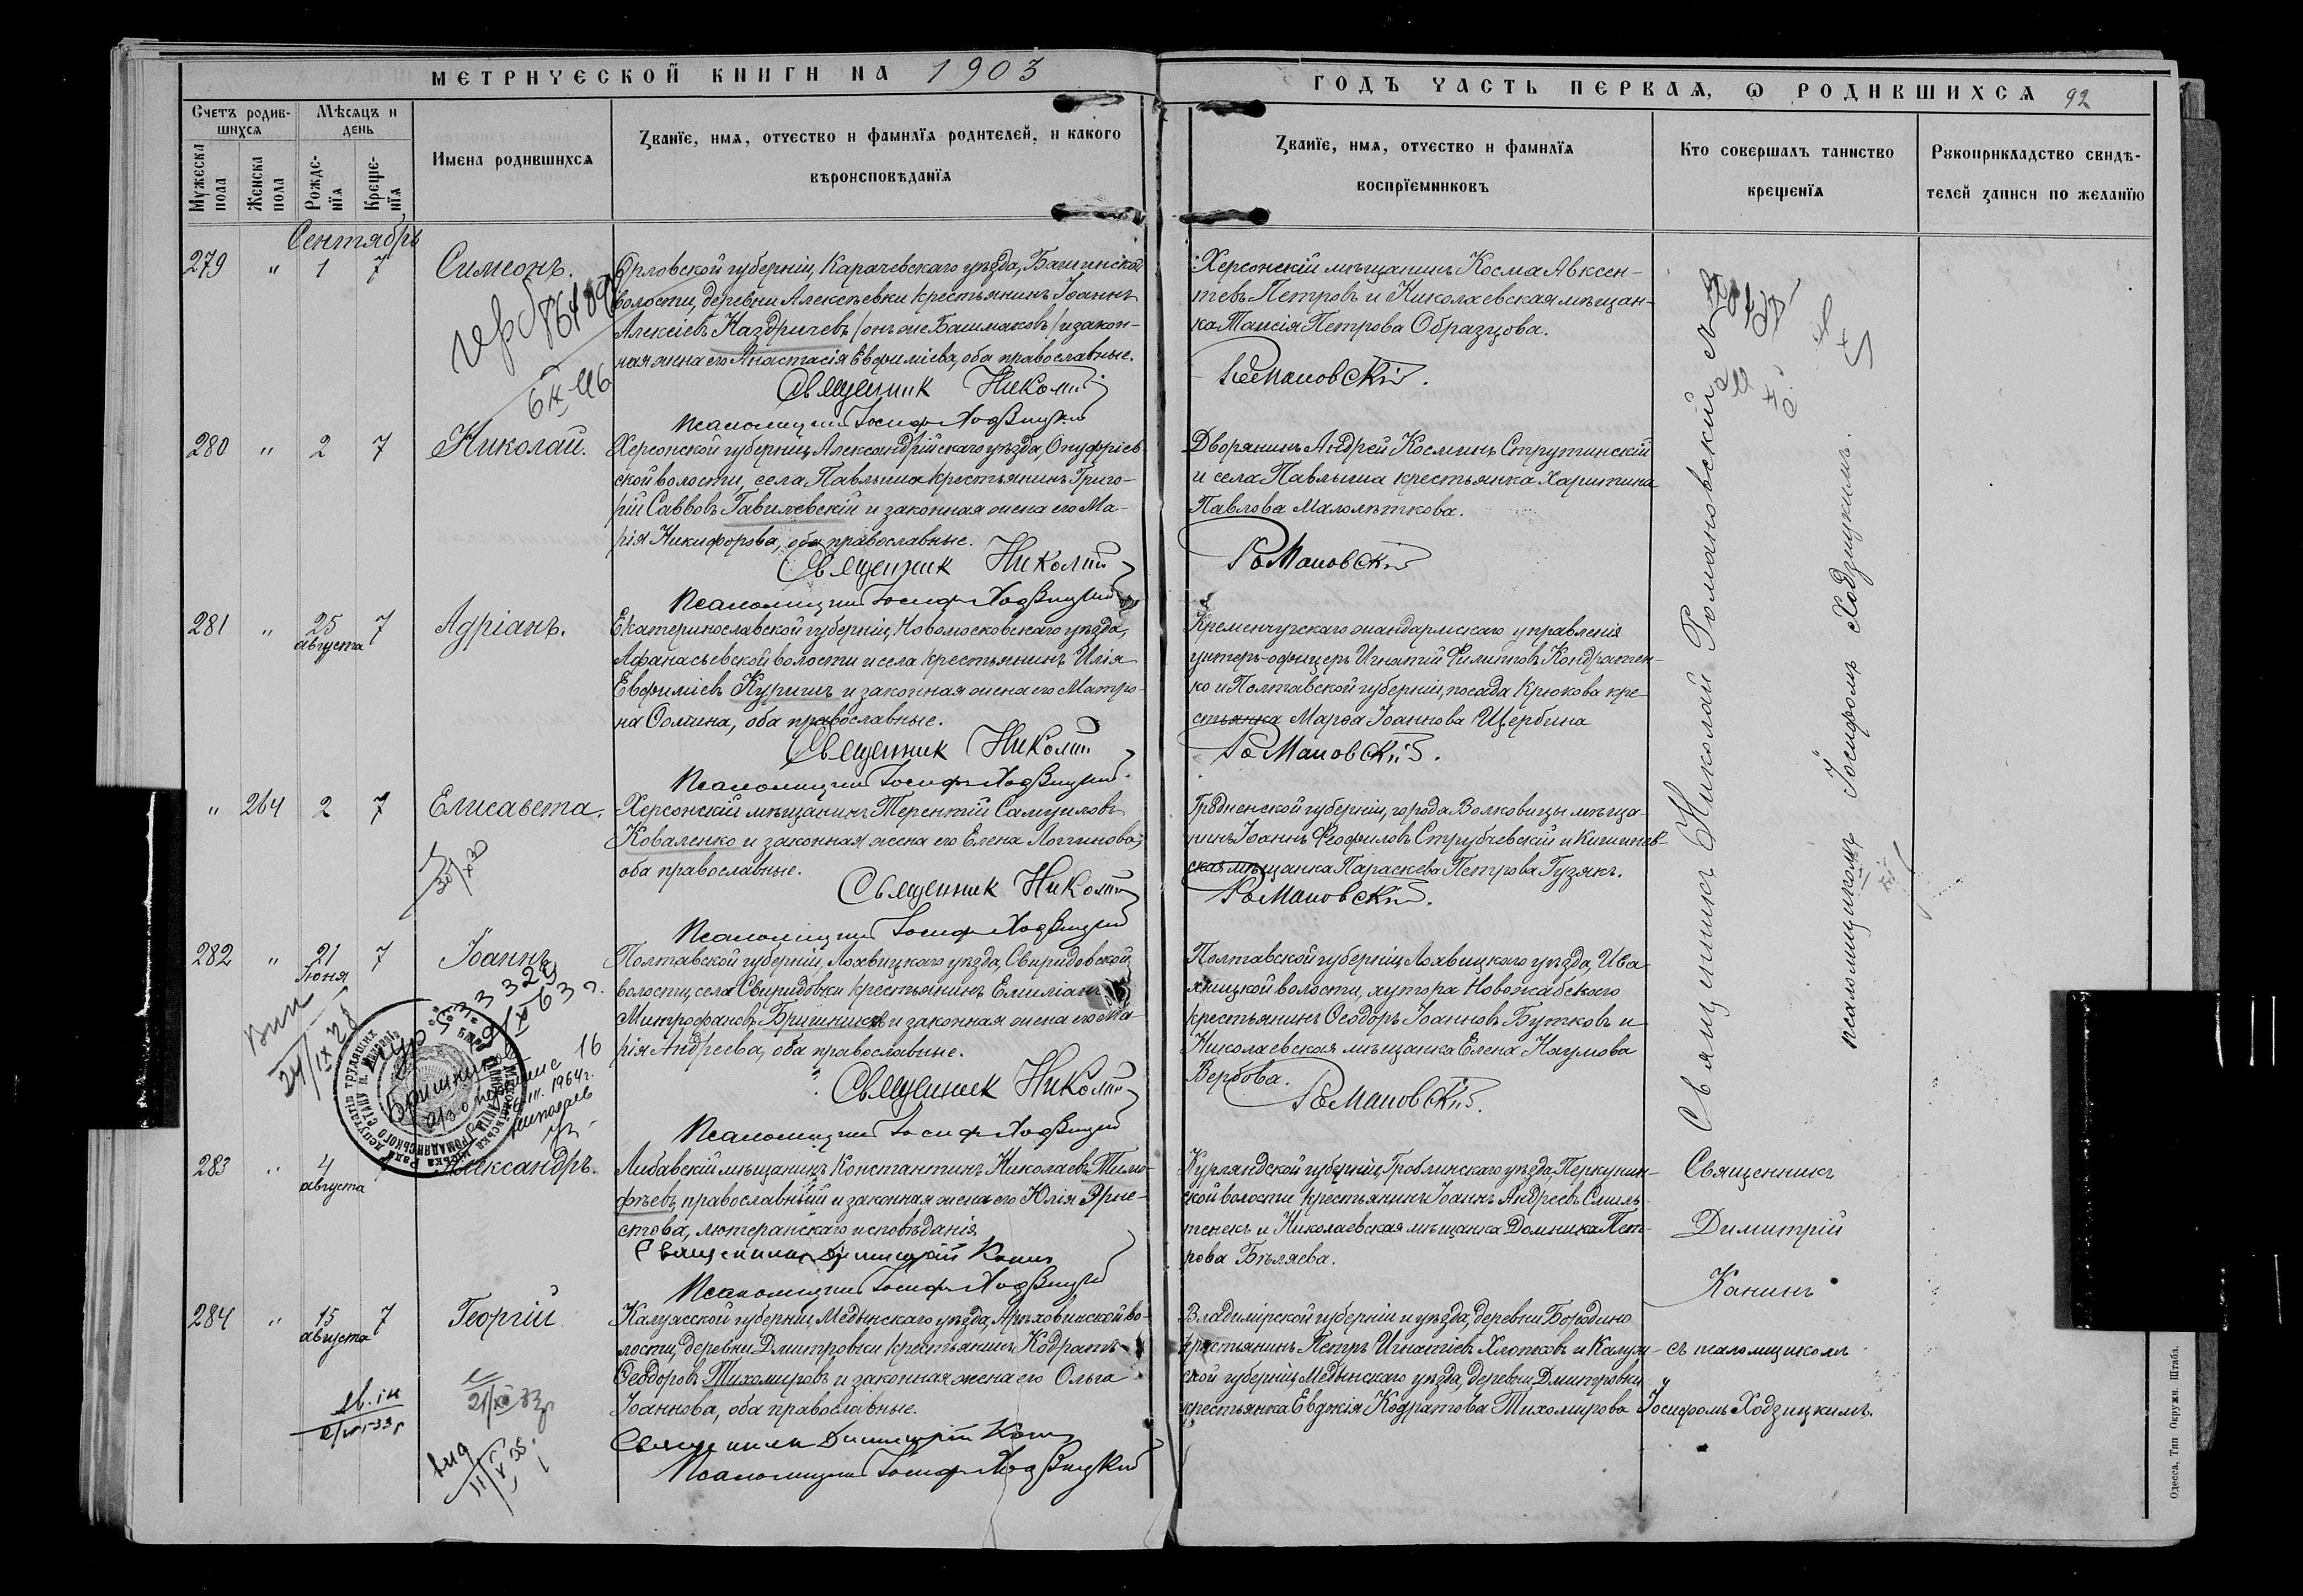 МЕТРИЧЕСКОЙ КНИГИ НА 1903
ГОДЪ ЧАСТЬ ПЕРВАЯ, Ѡ РОДИВШИХСЯ 92
Счетъ родив-
шихся
Мѣсяцъ и
день
Мужеска
пола
Женска
пола
Рожде-
нїя
Креще-
нїя
Имена родившихся
Званїе, имя, отчество и фамилїя родителей, и какого
вѣроисповѣданїя
Званїе, имя, отчество и фамилїя
воспрїемниковъ
Кто совершалъ таинство
крещенїя
Рукоприкладство свидѣ-
телей записи по желанїю
Сентябрь
279 " 1 7 Симеонъ.
Орловской губерніи, Карачевскаго уѣзда,
волости, деревни Алексѣевки крестьянинъ Іоаннъ
Алексіевъ Каздричевъ (онъ же Башмаковъ) и закон-
ная жена его Анастасія Евфиміева, оба православные.
Священник Николай
Псаломщик Іосиф Ходзицкий
Херсонскій мѣщанинъ Косма Авксен-
тіевъ Петровъ и Николаевская мѣщан-
ка Таисія Петрова Образцова.
Романовский.
герб
6 IX 46
280 " 2 7 Николай.
Херсонской губерніи, Александрійскаго уѣзда, Онуфріев
ской волости, села Павлыша крестьянинъ Григо-
рій Саввовъ Гавилевскій и законная жена его Ма-
рія Никифорова, оба православные.
Священник Николай
Псаломщик Іосиф Ходзицкий
Дворянинъ Андрей Косминъ Струтинскій
и села Павлыша крестьянка Харитина
Павлова Малолѣткова.
Романовский
281 " 25 августа 7 Адріанъ.
Екатеринославской губерніи, Новомосковскаго уѣзда,
Афанасьевской волости и села крестьянинъ Илія
Евфиміевъ Куришъ и законная жена его Матро-
на Ѳомина, оба православные.
Священник Николай
Псаломщик Іосиф Ходзицкий
Кременчугскаго жандармскаго управленія
унтеръ-офицеръ Игнатій Филиповъ Кондратен-
ко и Полтавской губерніи, посада Крюкова кре-
стьянка Марѳа Іоаннова Щербина
Романовский.
" 264 2 7 Елисавета.
Херсонскій мѣщанинъ Терентій Самуиловъ
Коваленко и законная жена его Елена Логгинова,
оба православные.
Священник Николай
Псаломщик Іосиф Ходзицкий
Гродненской губерніи, города Волковицы мѣща-
нинъ Іоаннъ Феофиловъ Струбчевскій и Кишинев-
ская мѣщанка Параскева Петрова Гузякъ.
Романовский.
282 " 21 Іюня 7 Іоаннъ
Полтавской губерніи, Лохвицкаго уѣзда, Свиридовской
волости, села Свиридовки крестьянинъ Емиліанъ
Митрофановъ и законная жена его Ма-
рія Андреева, оба православные.
Священник Николай
Псаломщик Іосиф Ходзицкий
Полтавской губерніи, Лохвицкаго уѣзда, Ива-
хницкой волости, хутора Новожабскаго
крестьянинъ Ѳеодоръ Іоанновъ Бутковъ и
Николаевская мѣщанка Елена Наумова
Вербова.
Романовский.
24/IX 28
1964 г.
283 " 4 августа Александръ.
Либавскій мѣщанинъ Константинъ Николаевъ Тимо-
фѣевъ, православный и законная жена его Юлія Эрне-
стова, лютеранскаго исповѣданія
Священник Димитрий Канин
Псаломщик Іосиф Ходзицкий
Курляндской губерніи, Гробинскаго уѣзда, Перкунен-
ской волости крестьянинъ Іоаннъ Андреевъ Смиль-
тенекъ и Николаевская мѣщанка Домника Пет-
рова Бѣляева.
284 " 15 августа 7 Георгій
Калужской губерніи Медынскаго уѣзда, во-
лости, деревни Дмитровки крестьянинъ Кодратъ
Ѳеодоровъ Тихомировъ и законная жена его Ольга
Іоаннова, оба православные.
Священник Димитрий Канин
Псаломщик Іосиф Ходзицкий
Владимірской губерніи и уѣзда, деревни Бородино
крестьянинъ Петръ Игнатіевъ Хлопковъ и Калуж-
ской губерніи, Медынскаго уѣзда, деревни Дмитровки
крестьянка Евдокія Кодратова Тихомирова
Священникъ Николай Романовскій съ
псаломщикомъ Іосифомъ Ходзицкимъ.
Священникъ
Димитрій
Канинъ
съ псаломщикомъ
Іосифомъ Ходзицкимъ.
Одесса. Тип. Окружн. Штаба.